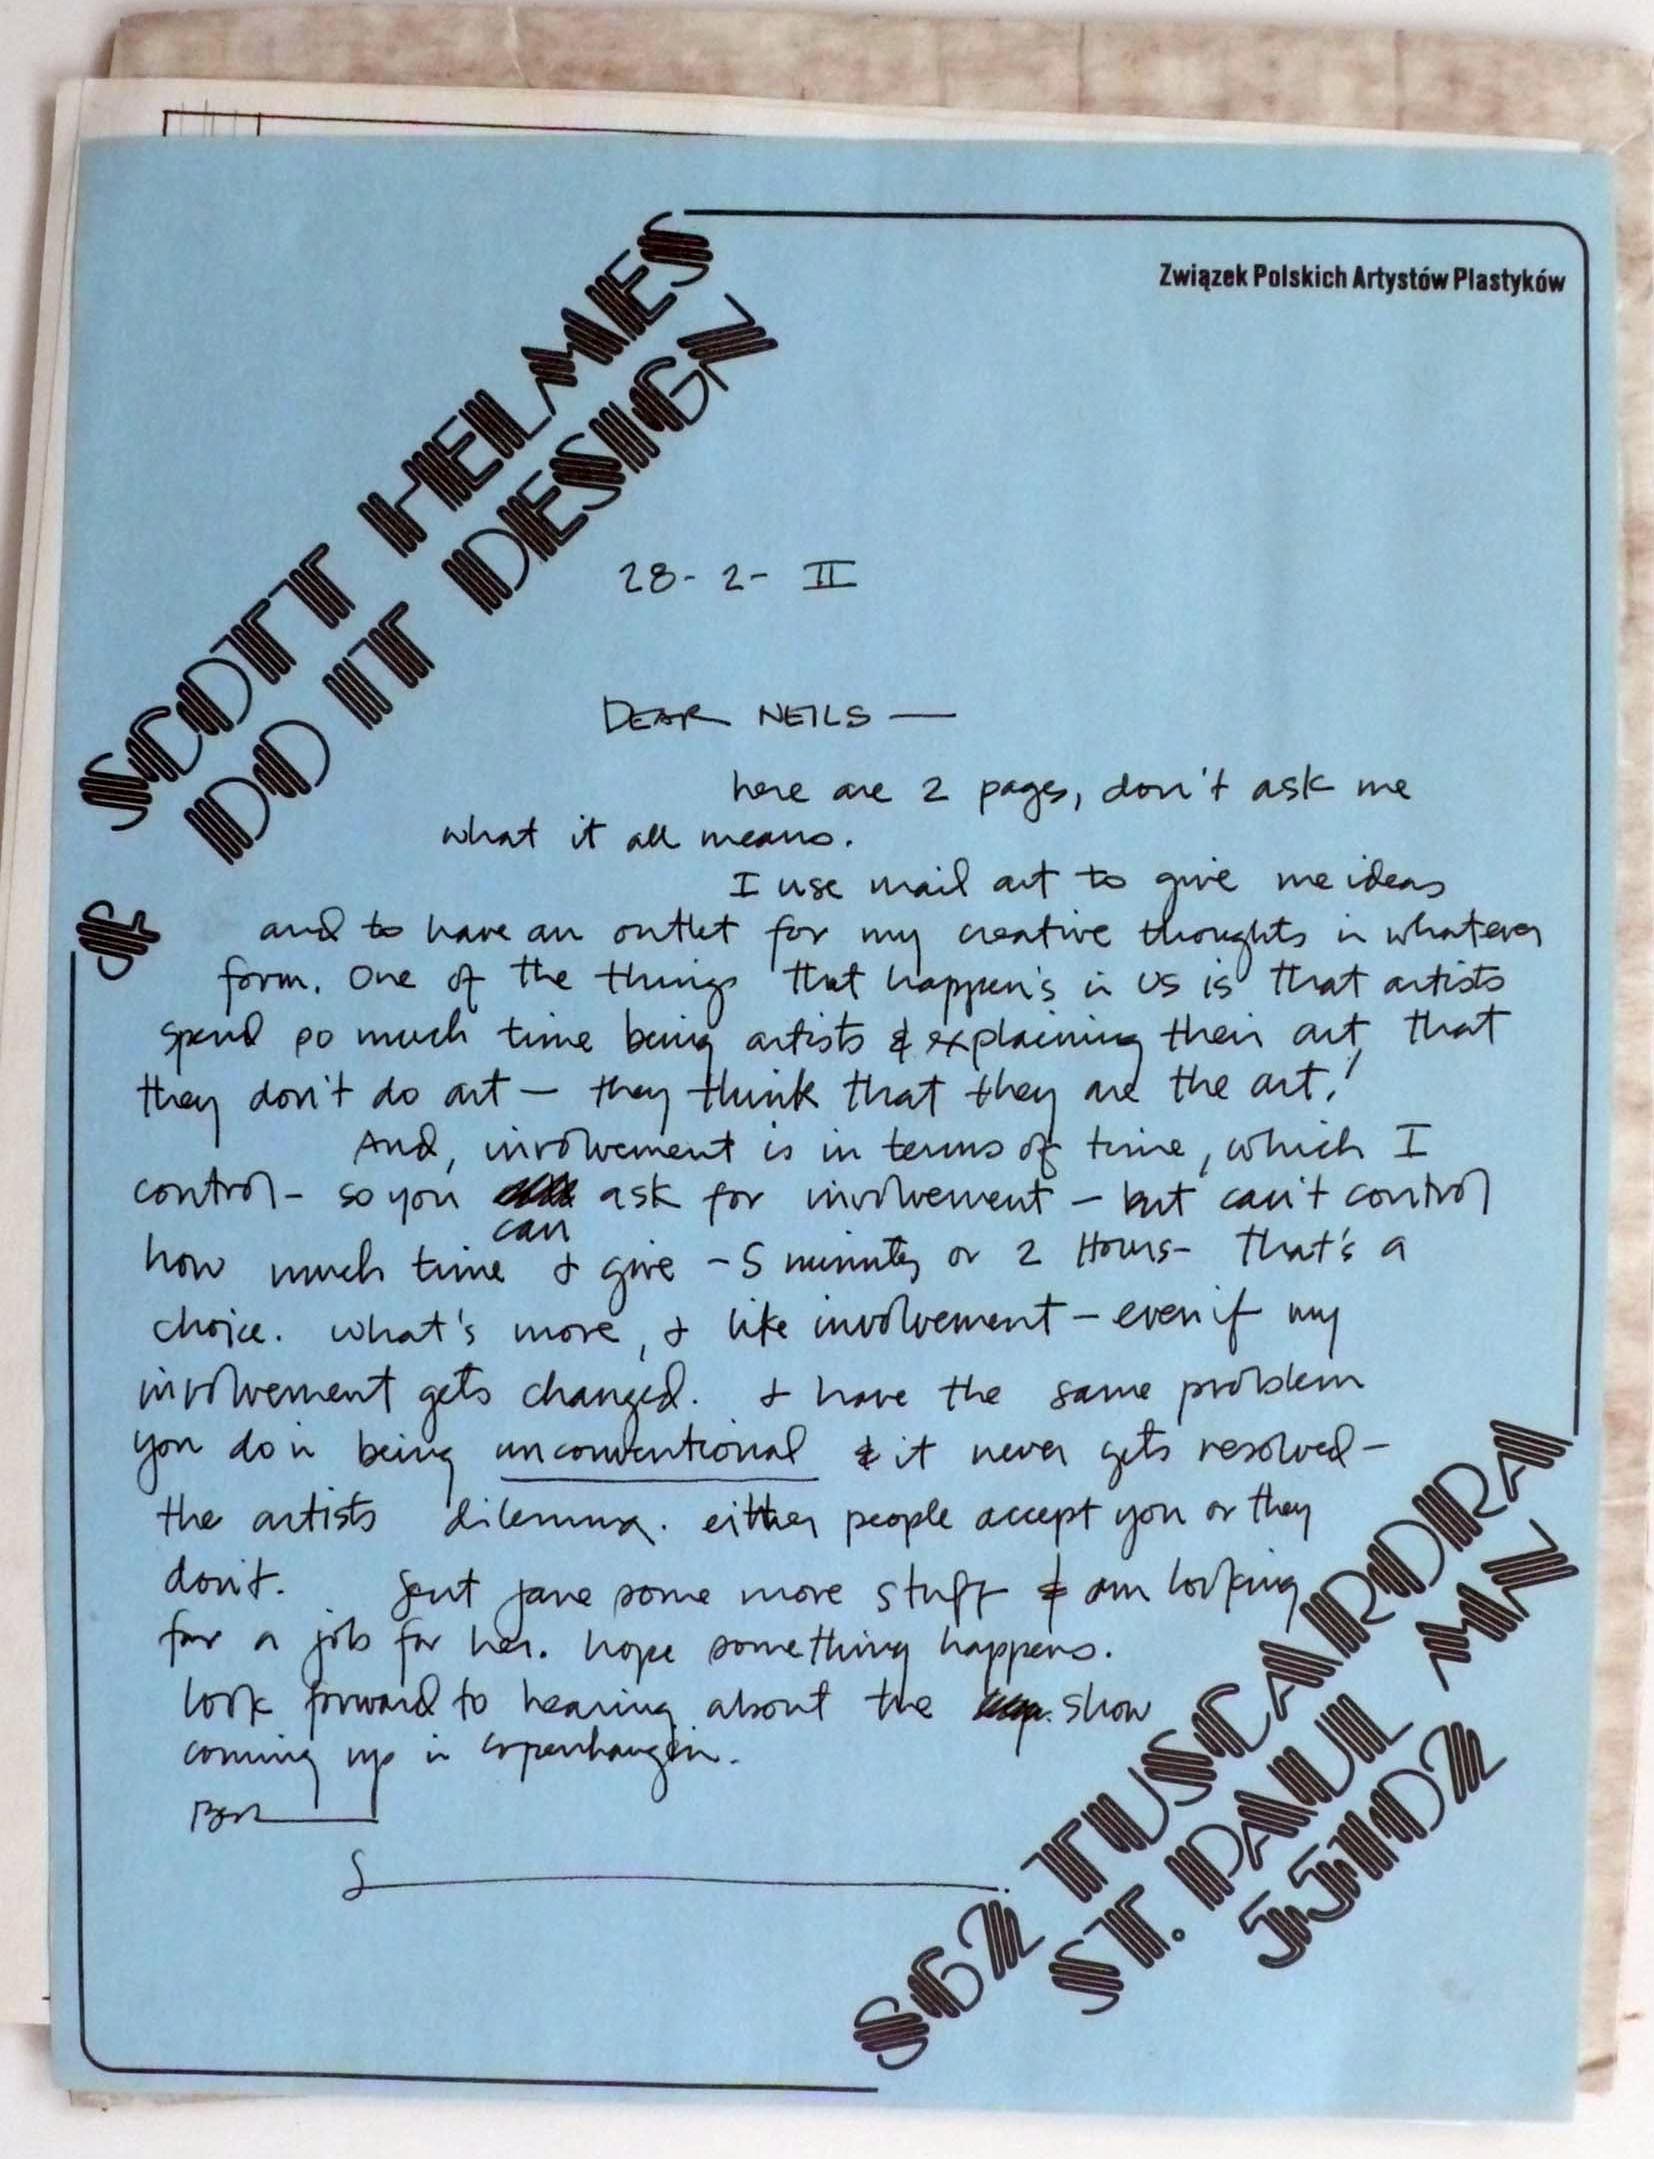 SCOTT HELMES
DO IT DESIGN
&
Związek Polskich Artystów Plastyków
28-2-II
DEAR NEILS —
here are 2 pages, don't ask me
what it all means.
I use mail art to give me ideas
and to have an outlet for my creative thoughts in whatever
form. One of the things that happen's in US is that artists
spend so much time being artists & explaining their art, that
they don't do art — they think that they are the art!
And, involvement is in terms of time, which I
control - so you can ask for involvement — but can't control
how much time I give - 5 minutes or 2 Hours - that's a
choice. What's more, I like involvement — even if my
involvement gets changed. I have the same problem
you do in being unconventional & it never gets resolved -
the artists dilemma. either people accept you or they
don't. Sent Jane some more stuff & am looking
for a job for her. hope something happens.
look forward to hearing about the show
coming up in Copenhaugin.
Best
S
862 TUSCARORA
ST. PAUL MN
55102